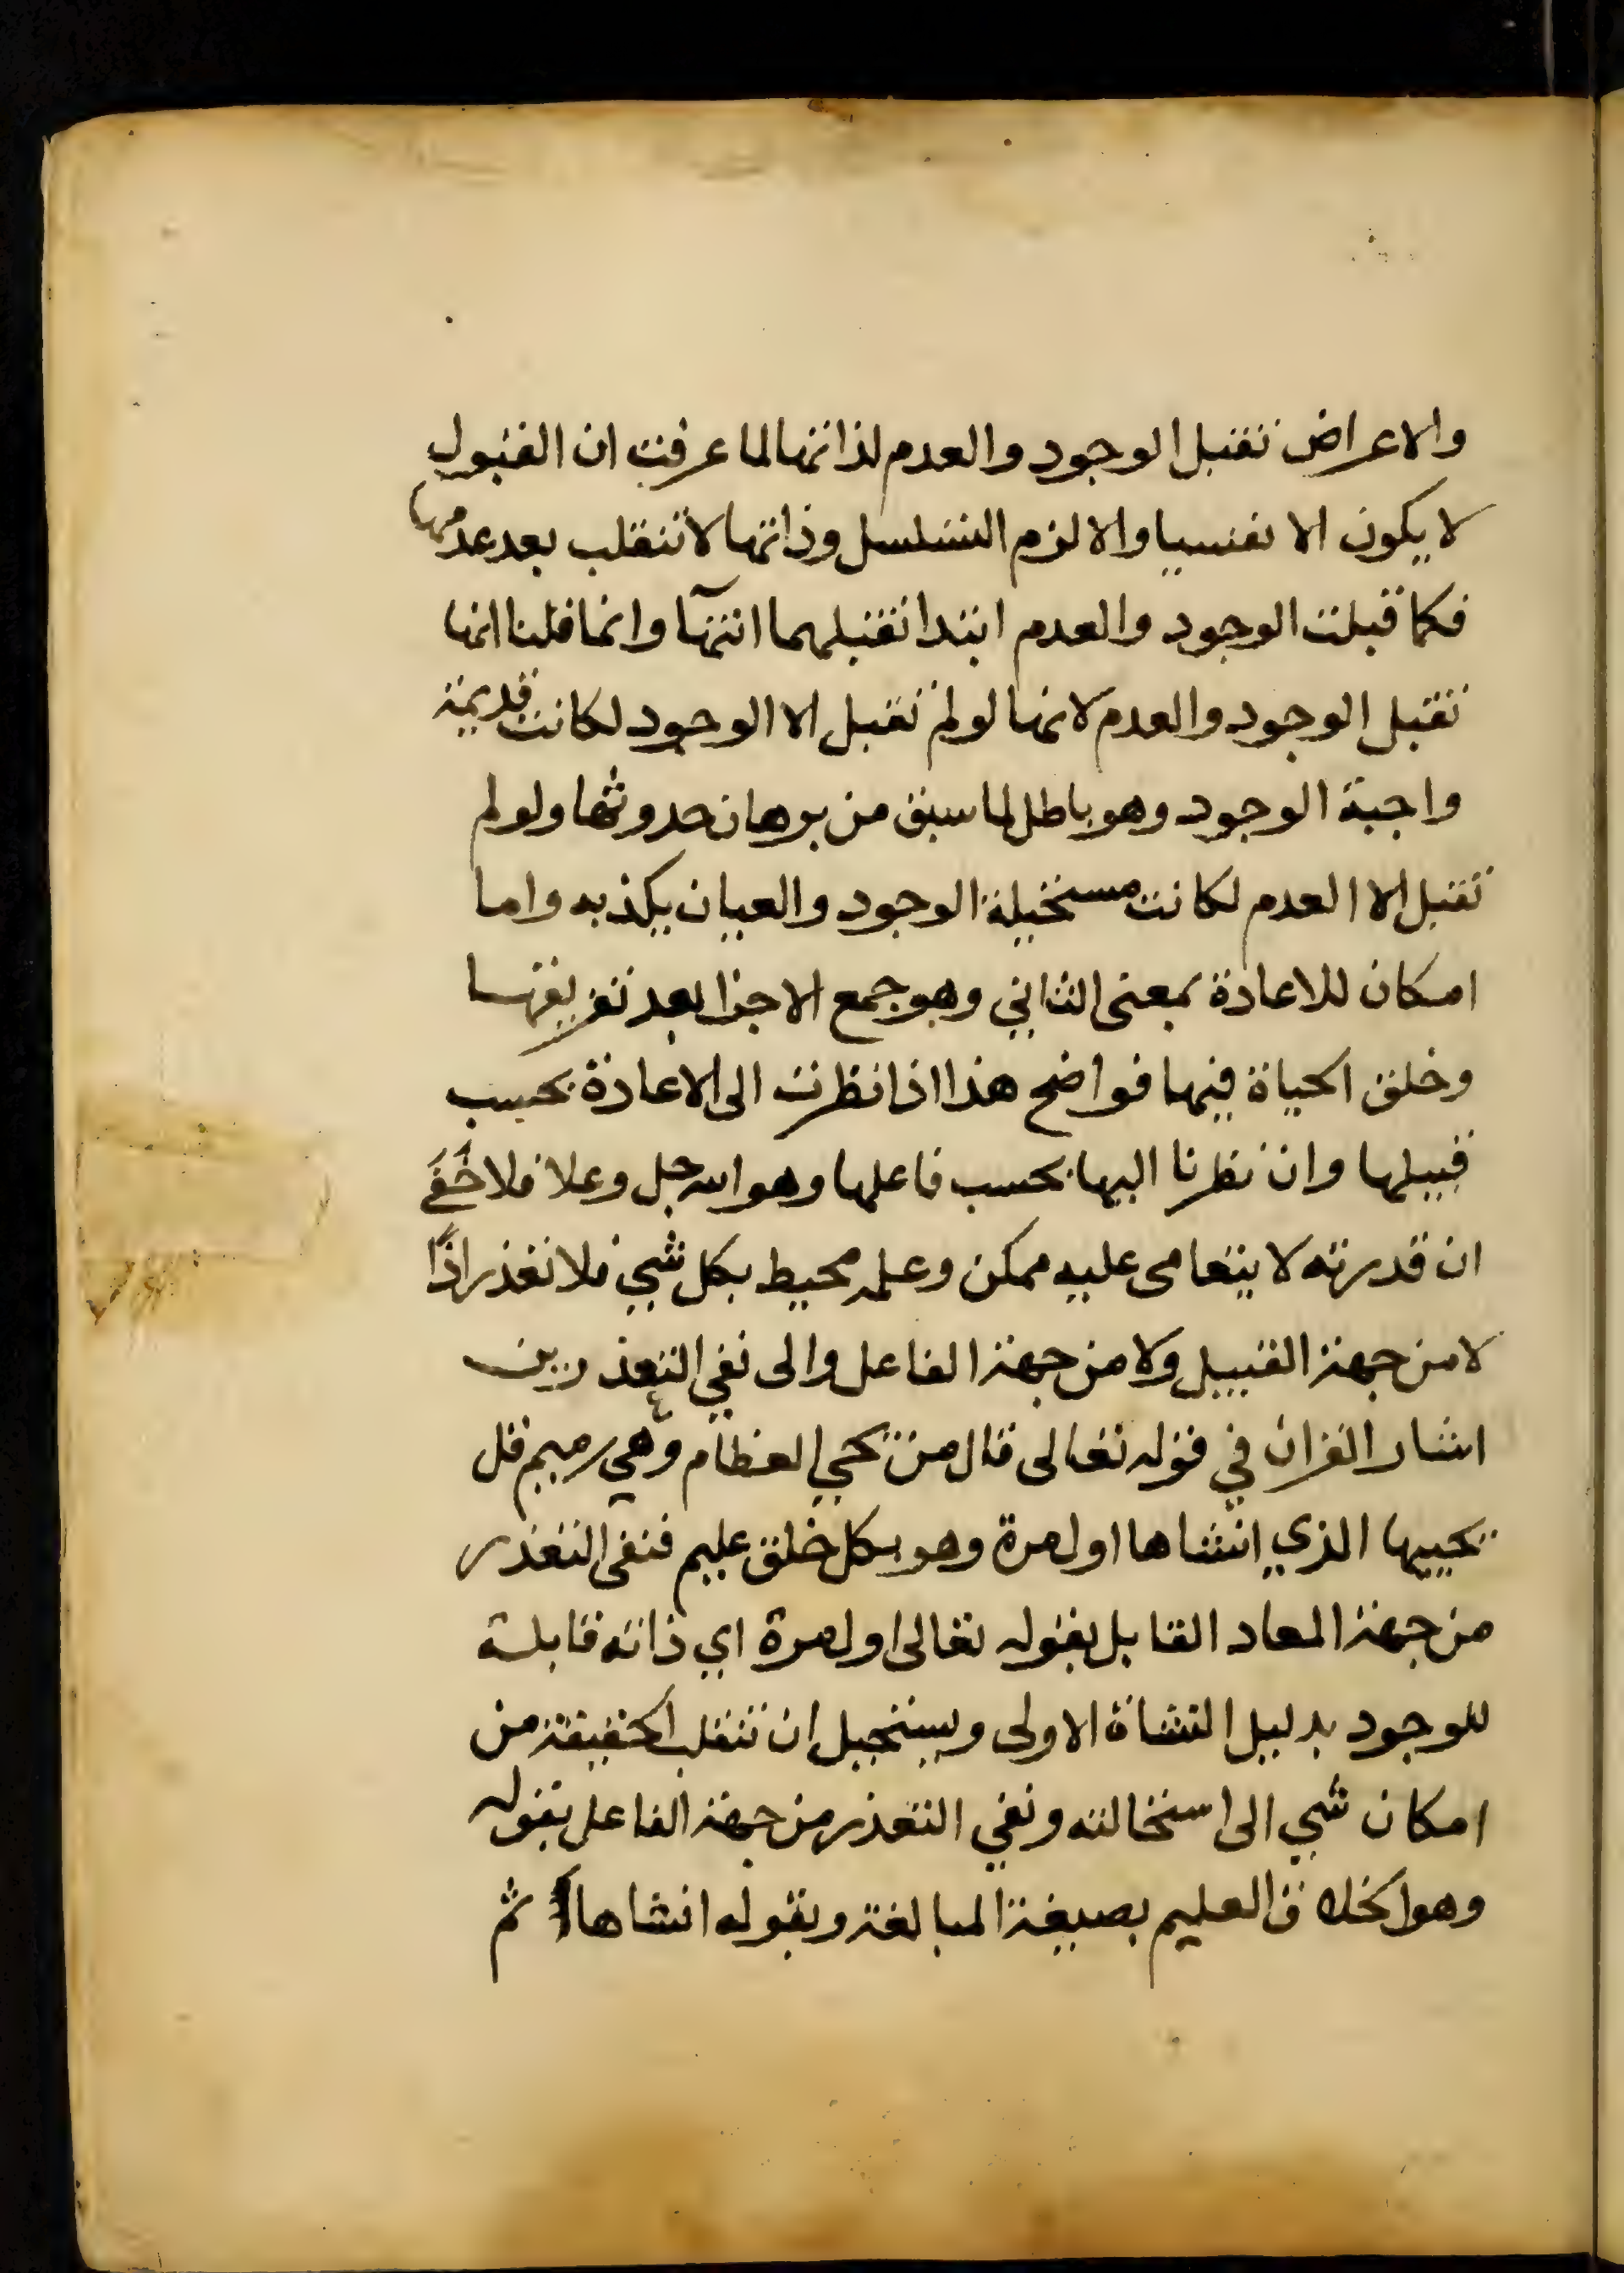 والاعراض تقبل الوجود والعدم لذاتها لما عرفت ان القبول
لا يكون الا نفسيا والا لزم التسلسل وذاتها لا تنقلب بعد عدمها
فكما قبلت الوجود والعدم ابتدا تقبلهما انتهآ وانما قلنا انها
تقبل الوجود والعدم لانها لو لم تقبل الا الوجود لكانت قديمة
واجبة الوجود وهو باطل لما سبق من برهان حدوثها ولو لم
تقبل الا العدم لكانت مستحيلة الوجود والعيان يكذبه واما
امكان للاعادة بمعنى الثاني وهو جمع الاجزا بعد تفريقها
وخلق الحياة فيها فواضح هذا اذا نظرت الى الاعادة بحسب
قبيلها وان نظرنا اليها بحسب فاعلها وهو الله جل وعلا فلا خفى
ان قدرته لا يتعامى عليه ممكن وعلمه محيط بكل شي فلا تعذر اذًا
لا من جهة القبيل ولا من جهة الفاعل والى نفي التعذرين
اشار القران في قوله تعالى قال من يحي العظام وهي رميم قل
يحييها الذي انشاها اول مرة وهو بكل خلق عليم فنفى التعذر
من جهة المعاد القابل بقوله تعالى اول مرة اي ذاته قابلة
للوجود بدليل النشاة الاولى ويستحيل ان تنقلب الحقيقة من
امكان شي الى استحالته ونفي التعذر من جهة الفاعل بقوله
وهو الخلاق العليم بصيغة المبالغة وبقوله انشاها ثم